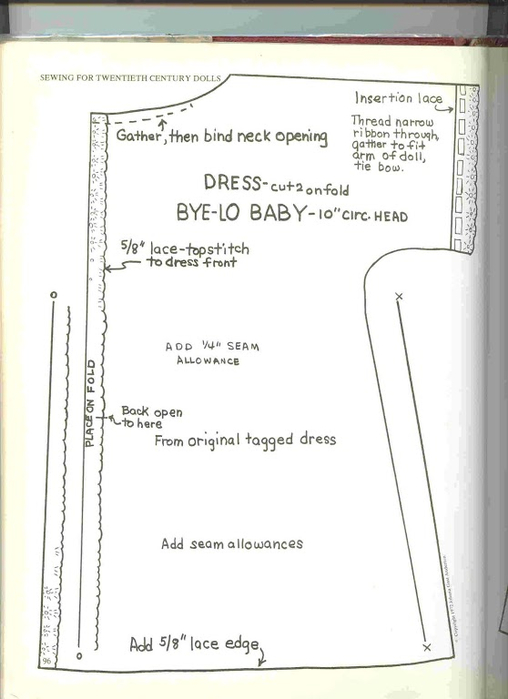 SEWING FOR TWENTIETH CENTURY DOLLS
Insertion lace
Thread narrow
ribbon through,
gather to fit
arm of doll,
tie bow.
Gather, then bind neck opening
DRESS-cut 2 on fold
BYE-LO BABY-10" CIRC. HEAD
5/8" lace-topstitch
to dress front
ADD 1/4" SEAM
ALLOWANCE
PLACE ON FOLD
Back open
to here
From original tagged dress
Add seam allowances
Add 5/8" lace edge
96